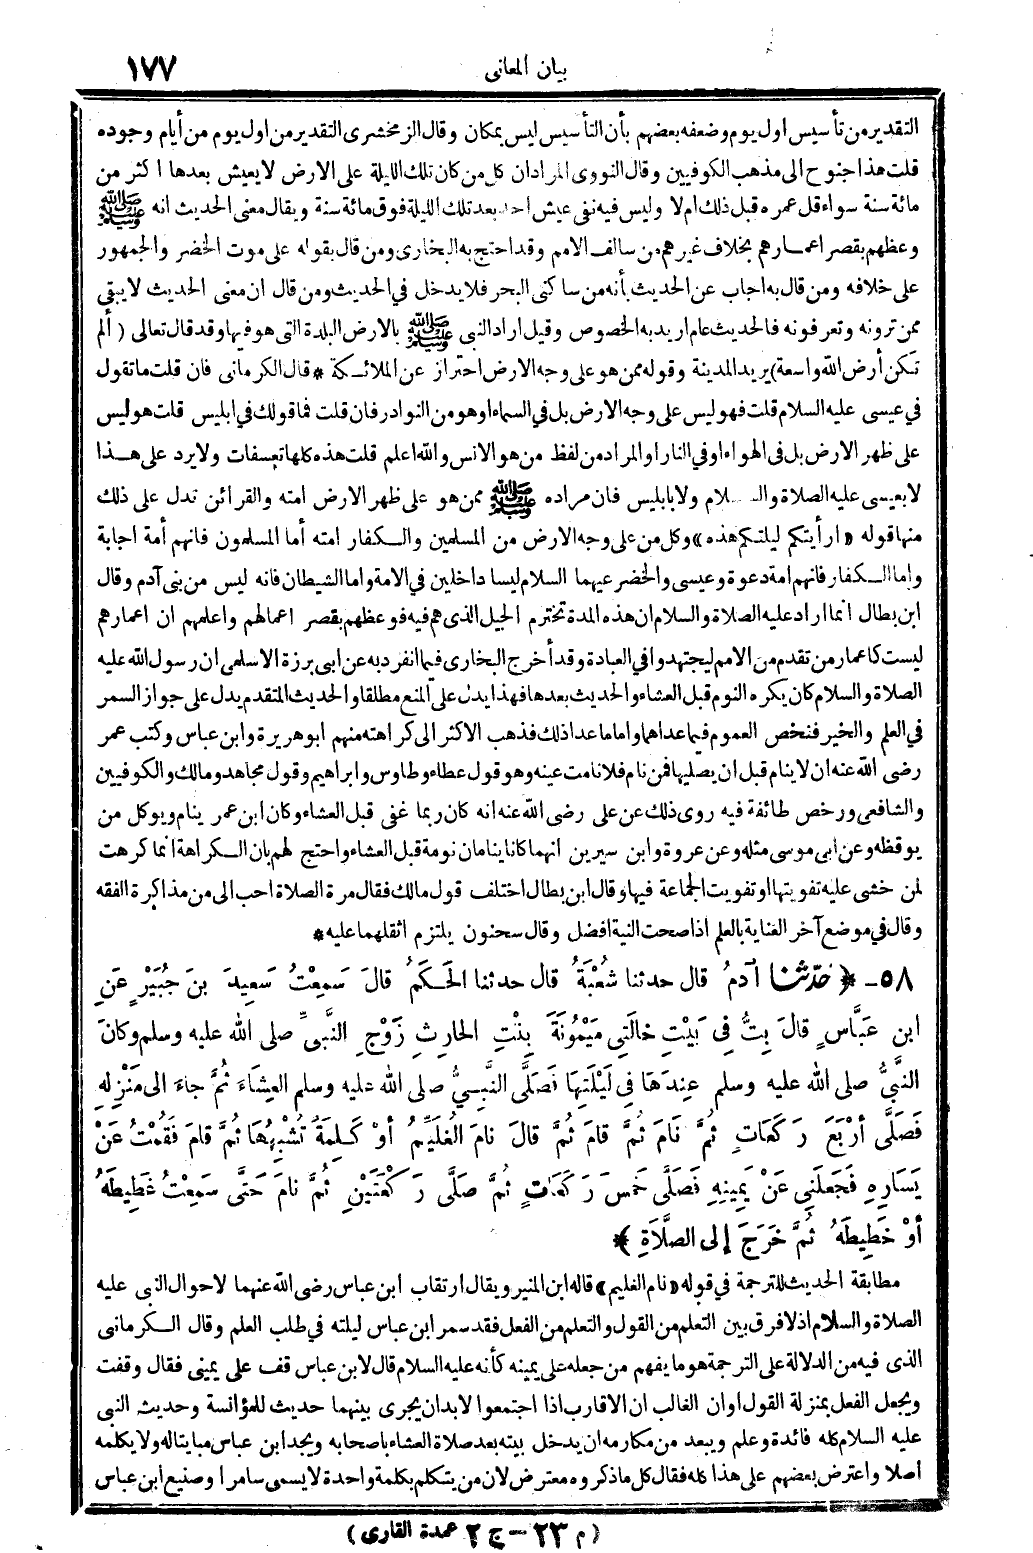 بيان المعانى
١٧٧
التقدير من تأسيس اول يوم وضعفه بعضهم بأن التأسيس ليس بمكان وقال الزمخشرى التقدير من اول يوم من أيام وجوده
قلت هذا جنوح الى مذهب الكوفيين وقال النووى المراد ان كل من كان تلك الليلة على الارض لا يعيش بعدها اكثر من
مائة سنة سواء قل عمره قبل ذلك ام لا وليس فيه نفى عيش احد بعد تلك الليلة فوق مائة سنة ويقال معنى الحديث انه ﷺ
وعظهم بقصر اعمارهم بخلاف غيرهم من سالف الامم وقد احتج به البخارى ومن قال بقوله على موت الخضر والجمهور
على خلافه ومن قال به اجاب عن الحديث بأنه من ساكنى البحر فلا يدخل في الحديث ومن قال ان معنى الحديث لا يبقى
ممن ترونه وتعرفونه فالحديث عام اريد به الخصوص وقيل اراد النبى ﷺ بالارض البلدة التى هو فيها وقد قال تعالى ( ألم
تكن أرض الله واسعة) يريد المدينة وقوله ممن هو على وجه الارض احتراز عن الملائكة * قال الكرمانى فان قلت ما تقول
في عيسى عليه السلام قلت فهو ليس على وجه الارض بل في السماء او هو من النوادر فان قلت فما قولك في ابليس قلت هو ليس
على ظهر الارض بل فى الهواء او في النار او المراد من لفظ من هو الانس والله اعلم قلت هذه كلها تعسفات ولا يرد على هذا
لا بعيسى عليه الصلاة والسلام ولا بابليس فان مراده ﷺ ممن هو على ظهر الارض امته والقرائن تدل على ذلك
منها قوله «ارأيتكم ليلتكم هذه» وكل من على وجه الارض من المسلمين والكفار امته أما المسلمون فانهم أمة اجابة
واما الكفار فانهم امة دعوة وعيسى والخضر عليهما السلام ليسا داخلين في الامة واما الشيطان فانه ليس من بنى آدم وقال
ابن بطال انما اراد عليه الصلاة والسلام ان هذه المدة تخترم الجيل الذى هم فيه فوعظهم بقصر اعمالهم واعلمهم ان اعمارهم
ليست كاعمار من تقدم من الامم ليجتهدوا في العبادة وقد أخرج البخارى فيما انفرد به عن ابى برزة الاسلمى ان رسول الله عليه
الصلاة والسلام كان يكره النوم قبل العشاء والحديث بعدها فهذا يدل على المنع مطلقا والحديث المتقدم يدل على جواز السمر
في العلم والخير فنخص العموم فيما عداهما واما ما عدا ذلك فذهب الاكثر الى كراهته منهم ابو هريرة وابن عباس وكتب عمر
رضى الله عنه ان لا ينام قبل ان يصليها فمن نام فلا نامت عينه وهو قول عطاء وطاوس وابراهيم وقول مجاهد ومالك والكوفيين
والشافعى ورخص طائفة فيه روى ذلك عن على رضى الله عنه انه كان ربما غفى قبل العشاء وكان ابن عمر ينام ويوكل من
يوقظه وعن ابى موسى مثله وعن عروة وابن سيرين انهما كانا ينامان نومة قبل العشاء واحتج لهم بان الكراهة انما كرهت
لمن خشى عليه تفويتها او تفويت الجماعة فيها وقال ابن بطال اختلف قول مالك فقال مرة الصلاة احب الى من مذاكرة الفقه
وقال في موضع آخر العناية بالعلم اذا صحت النية افضل وقال سحنون يلتزم اثقلهما عليه *
٥٨ - ﴿ حَدَّثَنَا آدَمُ قال حدثنا شُعْبَةُ قال حدثنا الحَكَمُ قالَ سَمِعْتُ سَعِيدَ بنَ جُبَيْرٍ عَنِ
ابنِ عَبَّاسٍ قالَ بِتُّ فِي بَيْتِ خالَتِي مَيْمُونَةَ بِنْتِ الحارِثِ زَوْجِ النَّبيِّ صلى الله عليه وسلم وكانَ
النَّبيُّ صلى الله عليه وسلم عِندَهَا فِي لَيْلَتِهَا فَصَلَّى النَّبيُّ صلى الله عليه وسلم العِشَاءَ ثُمَّ جاءَ الى مَنْزِلِهِ
فَصَلَّى أرْبَعَ رَكَعَاتٍ ثُمَّ نَامَ ثُمَّ قامَ ثُمَّ قالَ نامَ الغُلَيِّمُ أوْ كَلِمَةً تُشْبِهُهَا ثُمَّ قامَ فَقُمْتُ عَنْ
يَسَارِهِ فَجَعَلَنِي عَنْ يَمِينِهِ فَصَلَّى خَمْسَ رَكَعَاتٍ ثُمَّ صَلَّى رَكْعَتَيْنِ ثُمَّ نامَ حَتَّى سَمِعْتُ غَطِيطَهُ
أوْ خَطِيطَهُ ثُمَّ خَرَجَ إلى الصَّلاَةِ ﴾ *
مطابقة الحديث للترجمة في قوله «نام الغليم» قاله ابن المنير ويقال ارتقاب ابن عباس رضى الله عنهما لاحوال النبى عليه
الصلاة والسلام اذ لا فرق بين التعلم من القول والتعلم من الفعل فقد سمر ابن عباس ليلته في طلب العلم وقال الكرمانى
الذى فيه من الدلالة على الترجمة هو ما يفهم من جعله على يمينه كأنه عليه السلام قال لابن عباس قف على يمينى فقال وقفت
ويجعل الفعل بمنزلة القول او ان الغالب ان الاقارب اذا اجتمعوا لا بد ان يجرى بينهما حديث للمؤانسة وحديث النبى
عليه السلام كله فائدة وعلم ويبعد من مكارمه ان يدخل بيته بعد صلاة العشاء باصحابه ويجد ابن عباس مبايتا له ولا يكلمه
أصلا واعترض بعضهم على هذا كله فقال كل ما ذكروه معترض لان من يتكلم بكلمة واحدة لا يسمى سامرا وصنيع ابن عباس
( م ٢٣ - ج ٢ عمدة القارى )